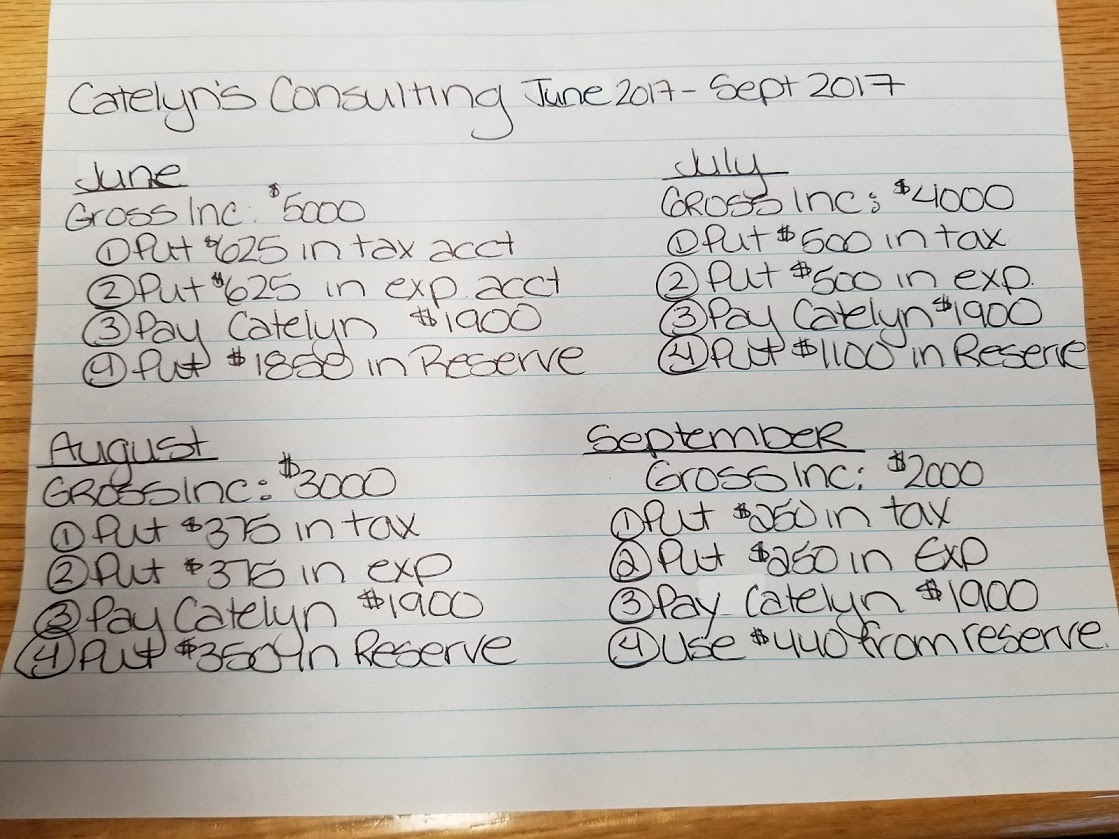 Catelyn's Consulting June 2017 - Sept 2017
June
Gross Inc: $5000
① Put $625 in tax acct
② Put $625 in exp. acct
③ Pay Catelyn $1900
④ Put $1850 in Reserve
July
GROSS Inc: $4000
① Put $500 in tax
② Put $500 in exp.
③ Pay Catelyn $1900
④ Put $1100 in Reserve
August
GROSS Inc: $3000
① Put $375 in tax
② Put $375 in exp
③ Pay Catelyn $1900
④ Put $350 in Reserve
September
Gross Inc: $2000
① Put $250 in tax
② Put $250 in Exp
③ Pay Catelyn $1900
④ Use $440 from reserve.